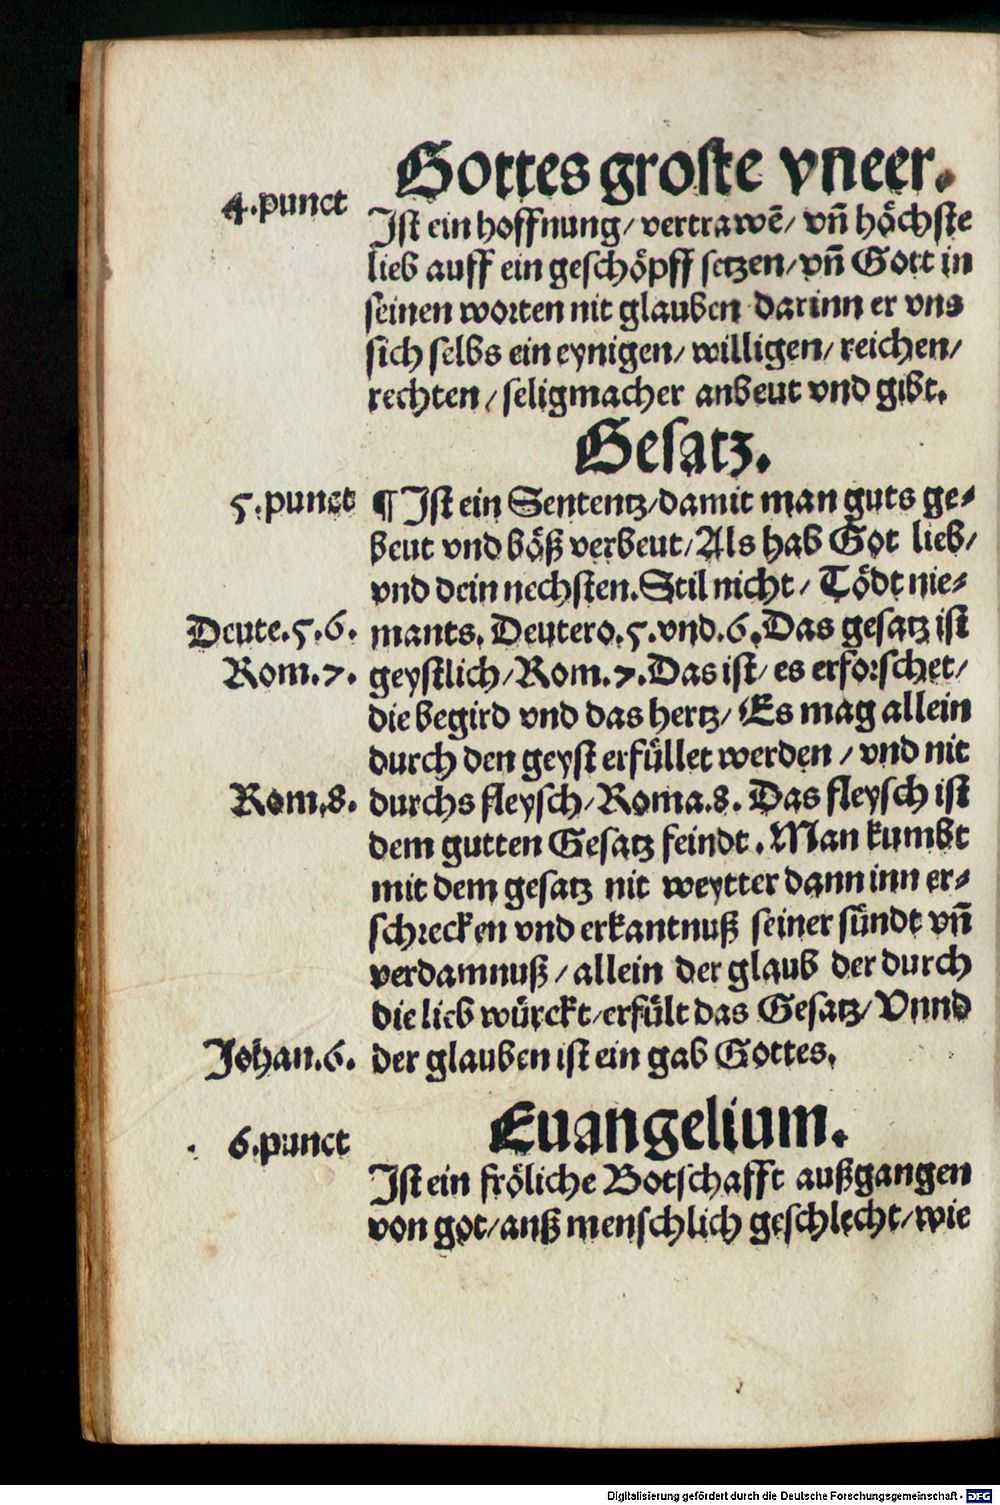 Gottes groste vneer.
4.punct
Ist ein hoffnung/ vertrawē/ vñ höchste
lieb auff ein geschöpff setzen/vñ Gott in
seinen worten nit glauben darinn er vns
sich selbs ein eynigen/ willigen/ reichen/
rechten/ seligmacher anbeut vnd gibt.
Gesatz.
5.punct
¶ Ist ein Sententz/damit man guts ge-
beut vnd böß verbeut/Als hab Got lieb/
vnd dein nechsten.Stil nicht/ Tödt nie-
Deute.5.6.
mants. Deutero.5.vnd.6.Das gesatz ist
Rom.7.
geystlich/Rom.7.Das ist/ es erforschet/
die begird vnd das hertz/ Es mag allein
durch den geyst erfüllet werden / vnd nit
Rom.8.
durchs fleysch/Roma.8. Das fleysch ist
dem gutten Gesatz feindt.Man kumbt
mit dem gesatz nit weytter dann inn er-
schrecken vnd erkantnuß seiner sündt vñ
verdamnuß/ allein der glaub der durch
die lieb würckt/erfült das Gesatz/ Vnnd
Johan.6.
der glauben ist ein gab Gottes.
Euangelium.
6.punct
Ist ein fröliche Botschafft außgangen
von got/anß menschlich geschlecht/wie
Digitalisierung gefördert durch die Deutsche Forschungsgemeinschaft - DFG